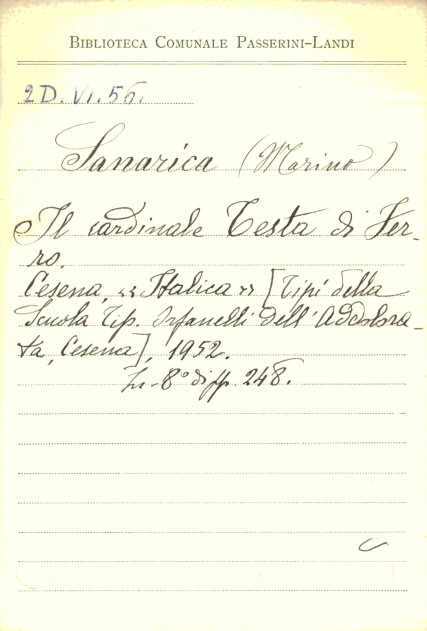 BIBLIOTECA COMUNALE PASSERINI-LANDI
2D.VI.56.
Sanarica (Marino)
Il cardinale Testa di Fer-
ro.
Cesena, « Italica » [Tipi della
Scuola Tip. Orfanelli dell'Addolora-
ta, Cesena], 1952.
In-8° di pp. 248.